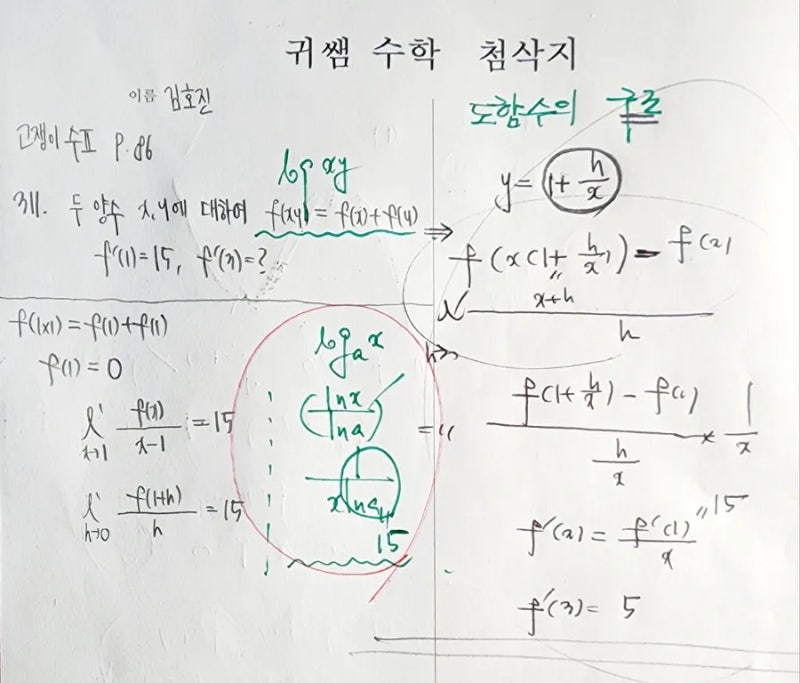 귀쌤 수학 첨삭지
이름 김호진
고쟁이 수Ⅱ P.86
311. 두 양수 x, y에 대하여 f(xy) = f(x)+f(y)
f'(1)=15, f'(3)=?
log xy
f(1×1)=f(1)+f(1)
f(1)=0
l' x→1 f(x)/(x-1) =15
l' h→0 f(1+h)/h =15
log_a x
ln x / ln a
1 / (x ln a)
15
도함수의 구조
y= 1+ h/x
⇒ f(x(1+ h/x)) - f(x)
x+h
h
h→0
= l' (f(1+ h/x) - f(1)) / (h/x) × 1/x
f'(x) = f'(1)/x
15
f'(3)= 5